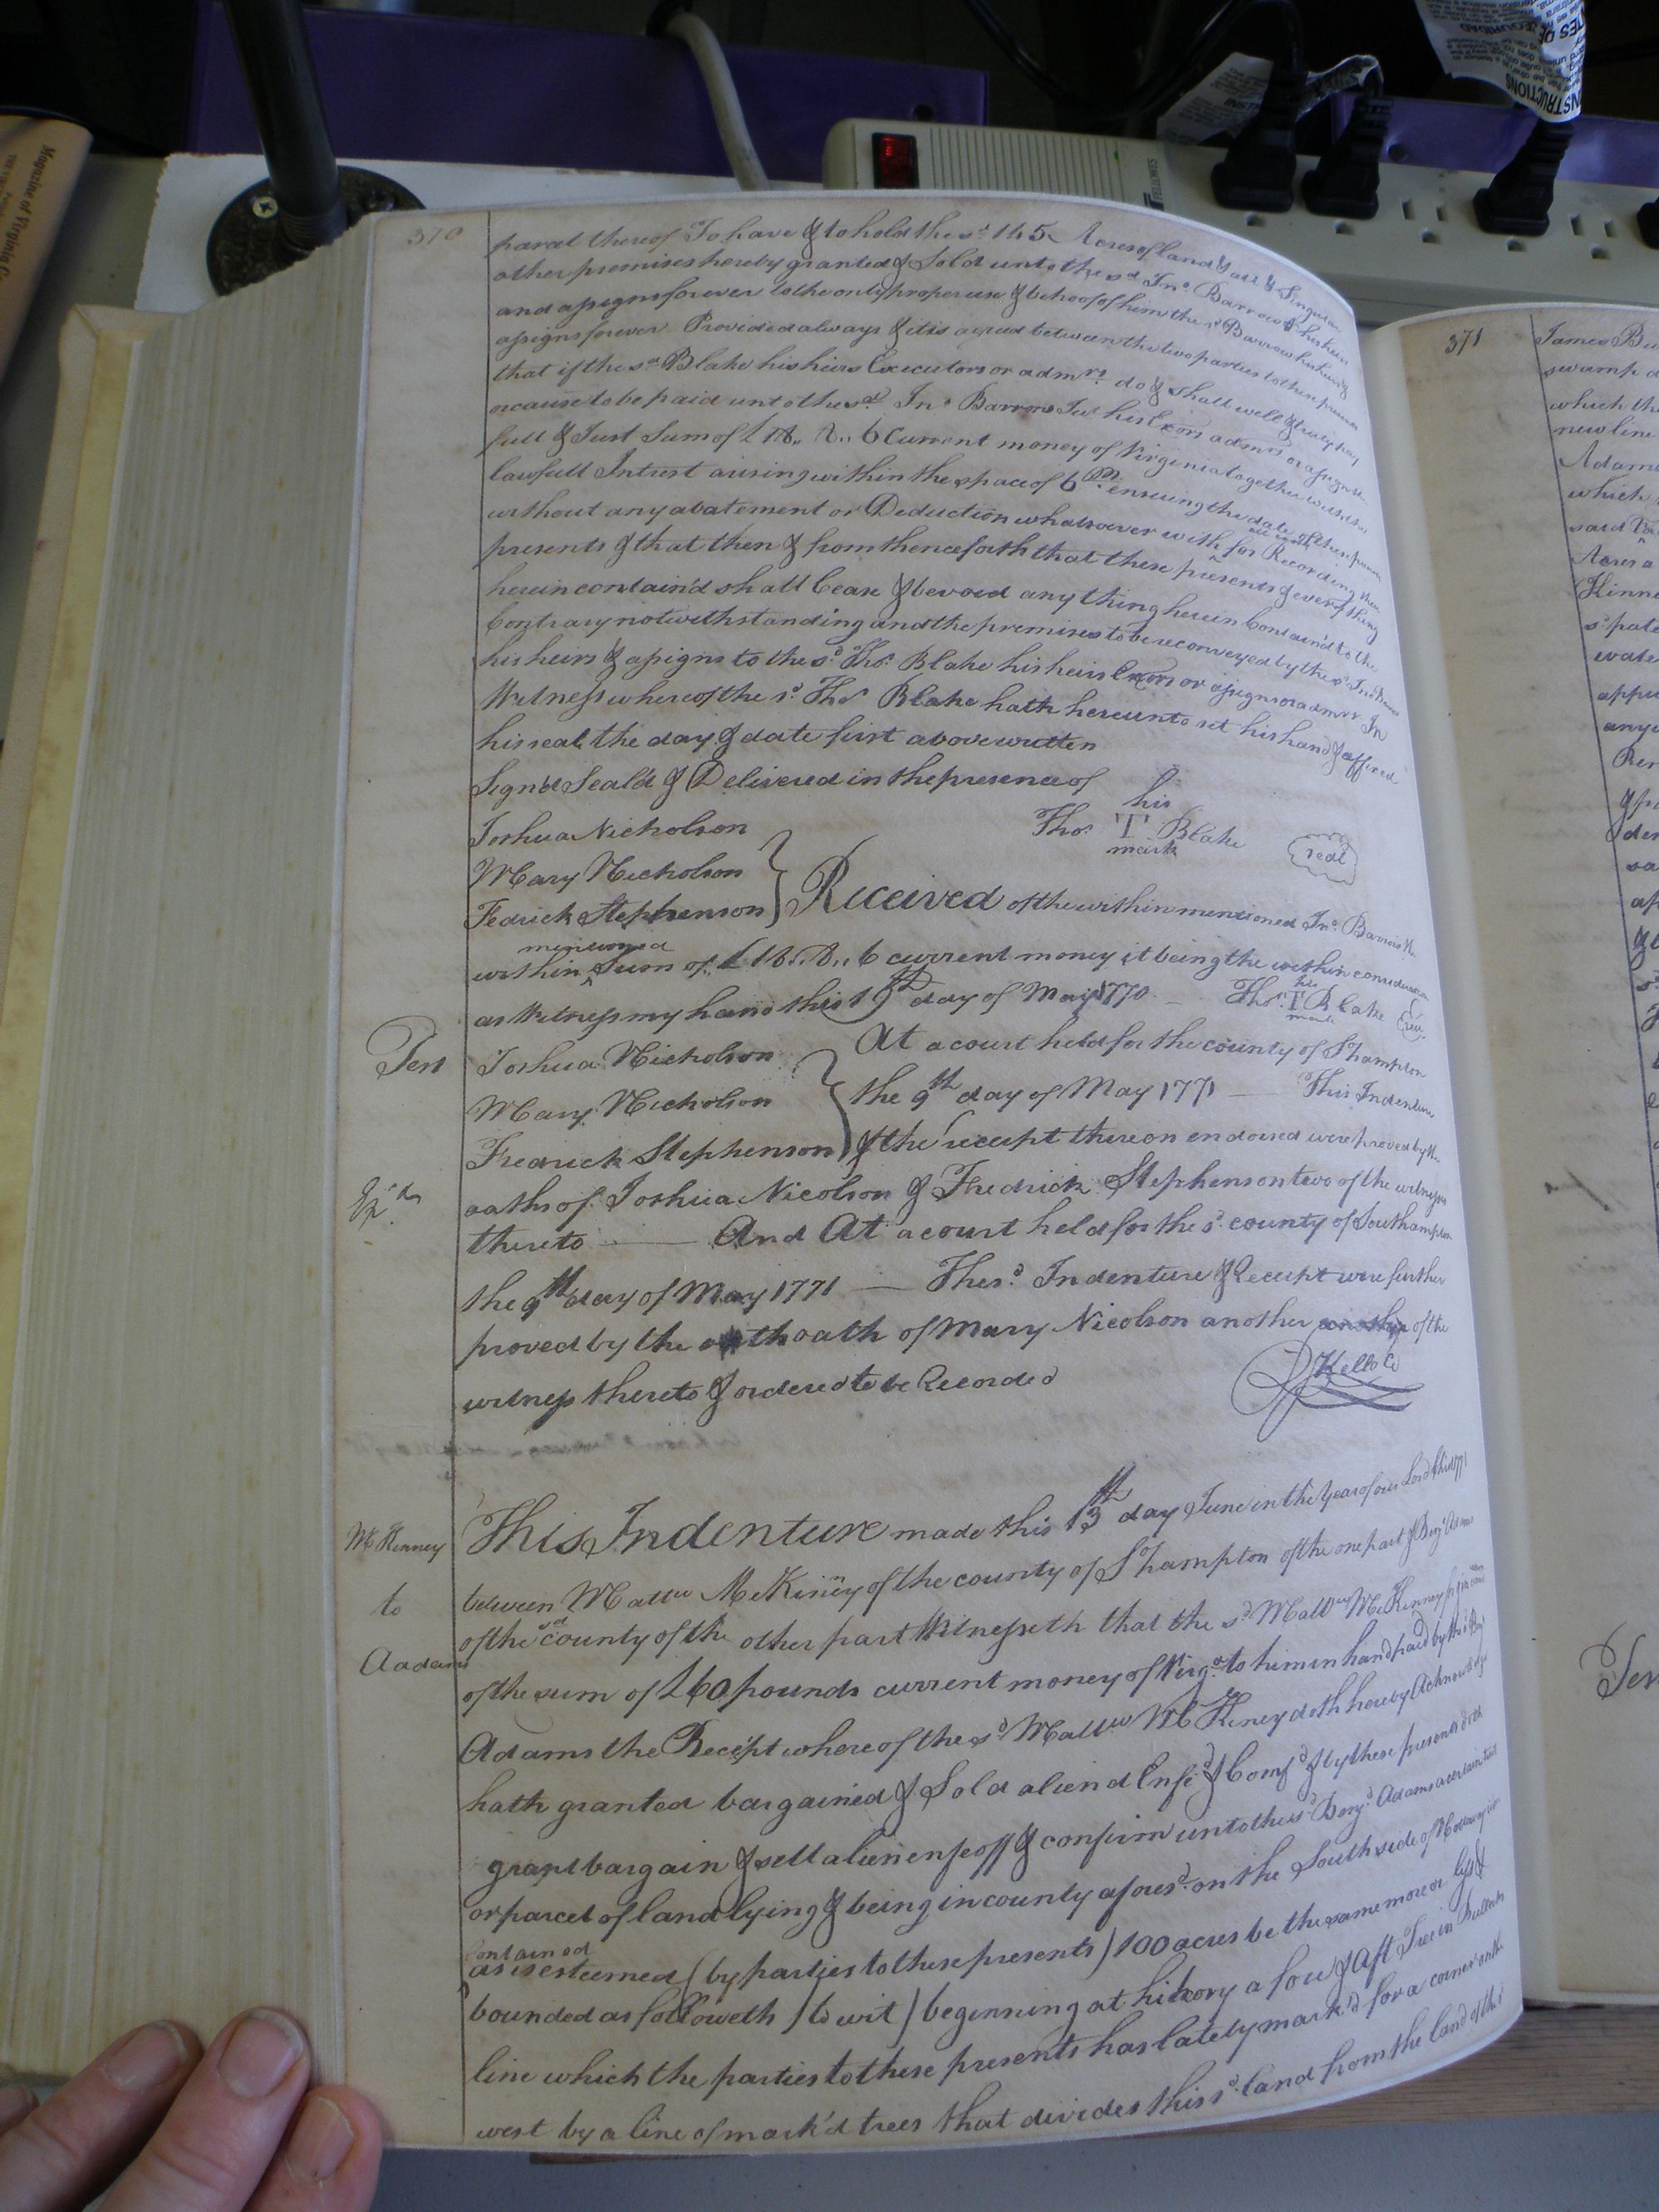 370
parcel thereof To have & to hold the sd. 145 Acres of land & all & Singular
other premises hereby granted & Sold unto the sd Jno. Barrow & his heirs
and assigns forever to the only proper use & behoof of him the sd Barrow his heirs &
assigns forever Provided always & it is agreed between the two parties to these presents
that if the sd Blake his heirs Executors or admrs. do & shall well & truly pay
or cause to be paid unto the sd. Jno. Barrow his Exors admrs or assigns
full & Just Sum of £ 18,, 8,, 6 Current money of Virginia together with the
lawfull Intrust arising within the space of 6 M. ensuing the date of these presents
without any abatement or Deduction whatsoever with for Recording these
presents & that then & from thenceforth that these presents & every thing
herein contain'd shall Cease & be void any thing herein Contain'd to the
Contrary notwithstanding and the premises to be reconveyed by the sd Jno Barrow
his heirs & assigns to the sd. Thos. Blake his heirs Exors or assigns or admrs In
Witness whereof the sd. Thos Blake hath hereunto set his hand & affixed
his seal the day & date first above written
Sign'd Seal'd & Delivered in the presence of
his
Joshua Nicholson
Thos. T Blake seal
mark
Mary Nicholson
Fedrick Stephenson
Received of the within mentioned Jno. Barrow the
mentioned
within ^ Sum of £ 18,, 8,, 6 current money it being the within consideration
as Witness my hand this 19th day of May 1770 — Thos. T Blake
his
mark
Test Joshua Nicholson At a court held for the county of S.hampton
Mary Nicholson the 9th day of May 1771 — This Indenture
Fredrick Stephenson & the receipt thereon endorsed were proved by the
oaths of Joshua Nicolson & Fredrick Stephenson two of the witnesses
thereto — And At a court held for the sd. county of Southampton
the 9th day of May 1771 — The sd. Indenture & Receipt were further
proved by the oath oath of Mary Nicolson another another of the
witness thereto & ordered to be Recorded
Kello C
McKenney
to
Aadams
This Indenture made this 13th day June in the Year of our Lord
between Mattw McKiney of the county of S.hampton of the one part & Benj. Adams
of the sd county of the other part Witnesseth that the sd Mattw McKenney
of the sum of £60 pounds current money of Virga. to him in hand paid by the sd
Adams the Receipt whereof the sd Mattw McKeney doth hereby Acknowledge
hath granted bargained & Sold aliend Enfd. & Comfd. & by these presents doth
grant bargain & sell alien enfeoff & confirm unto the sd Benj. Adams a certain tract
or parcel of land lying & being in county aforesd. on the South side of
contained
as is esteemed (by parties to these presents) 100 acres be the same more or less &
bounded as followeth (to wit) beginning at hickory a fore & Aft Tree in
line which the parties to these presents has lately mark'd for a corner
west by a line of mark'd trees that divides this sd. land from the land of the
371
James
swamp
which the
new line
Adams
which
said
Acres
water
FELLOWES
INSTRUCTIONS
Magazine of Virginia